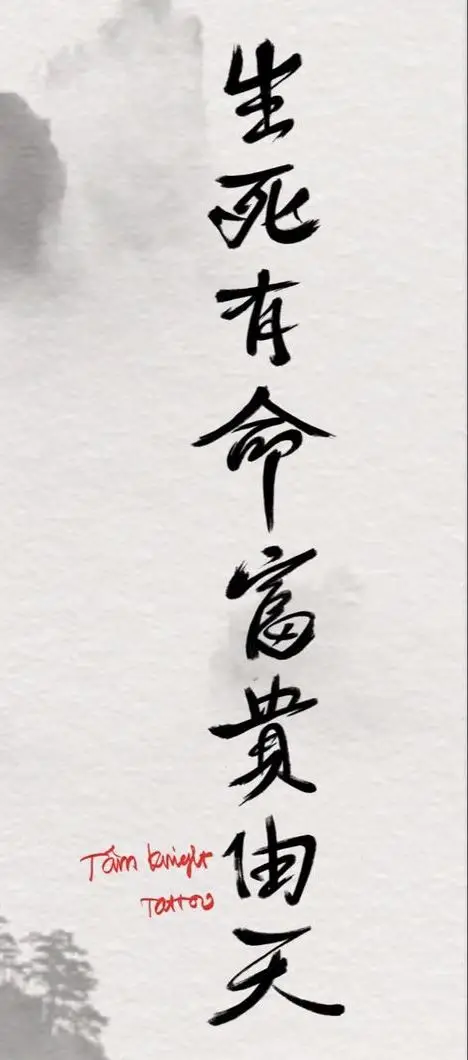 生死有命富貴伷天
Tâm knight
Tattoo